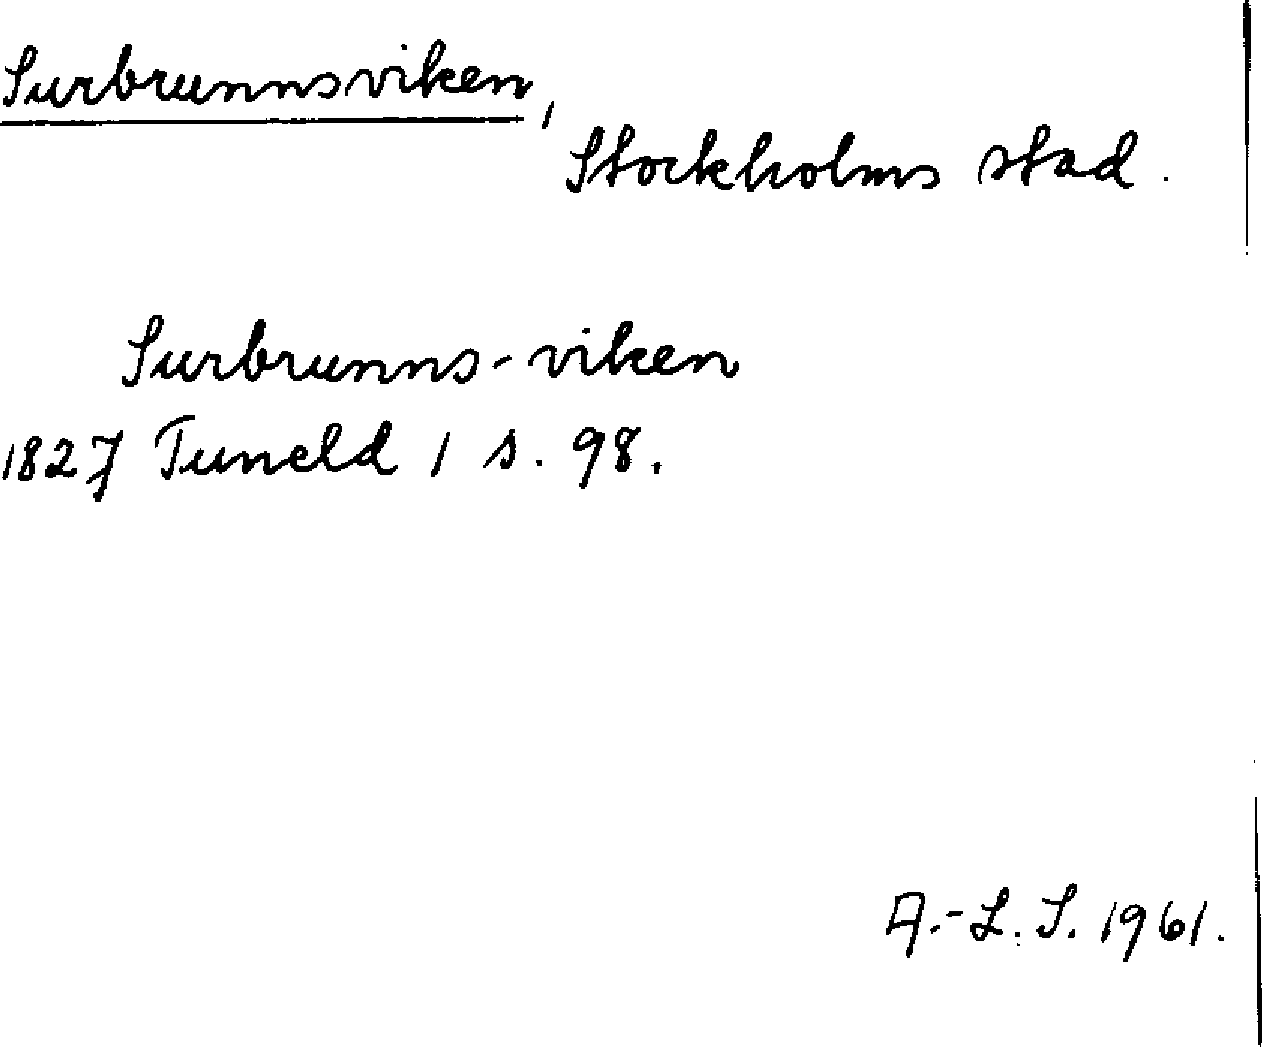 Surbrunnsviken,
Stockholms stad.
Surbrunns-viken
1827 Tuneld 1 s. 98.
A.-L. S. 1961.